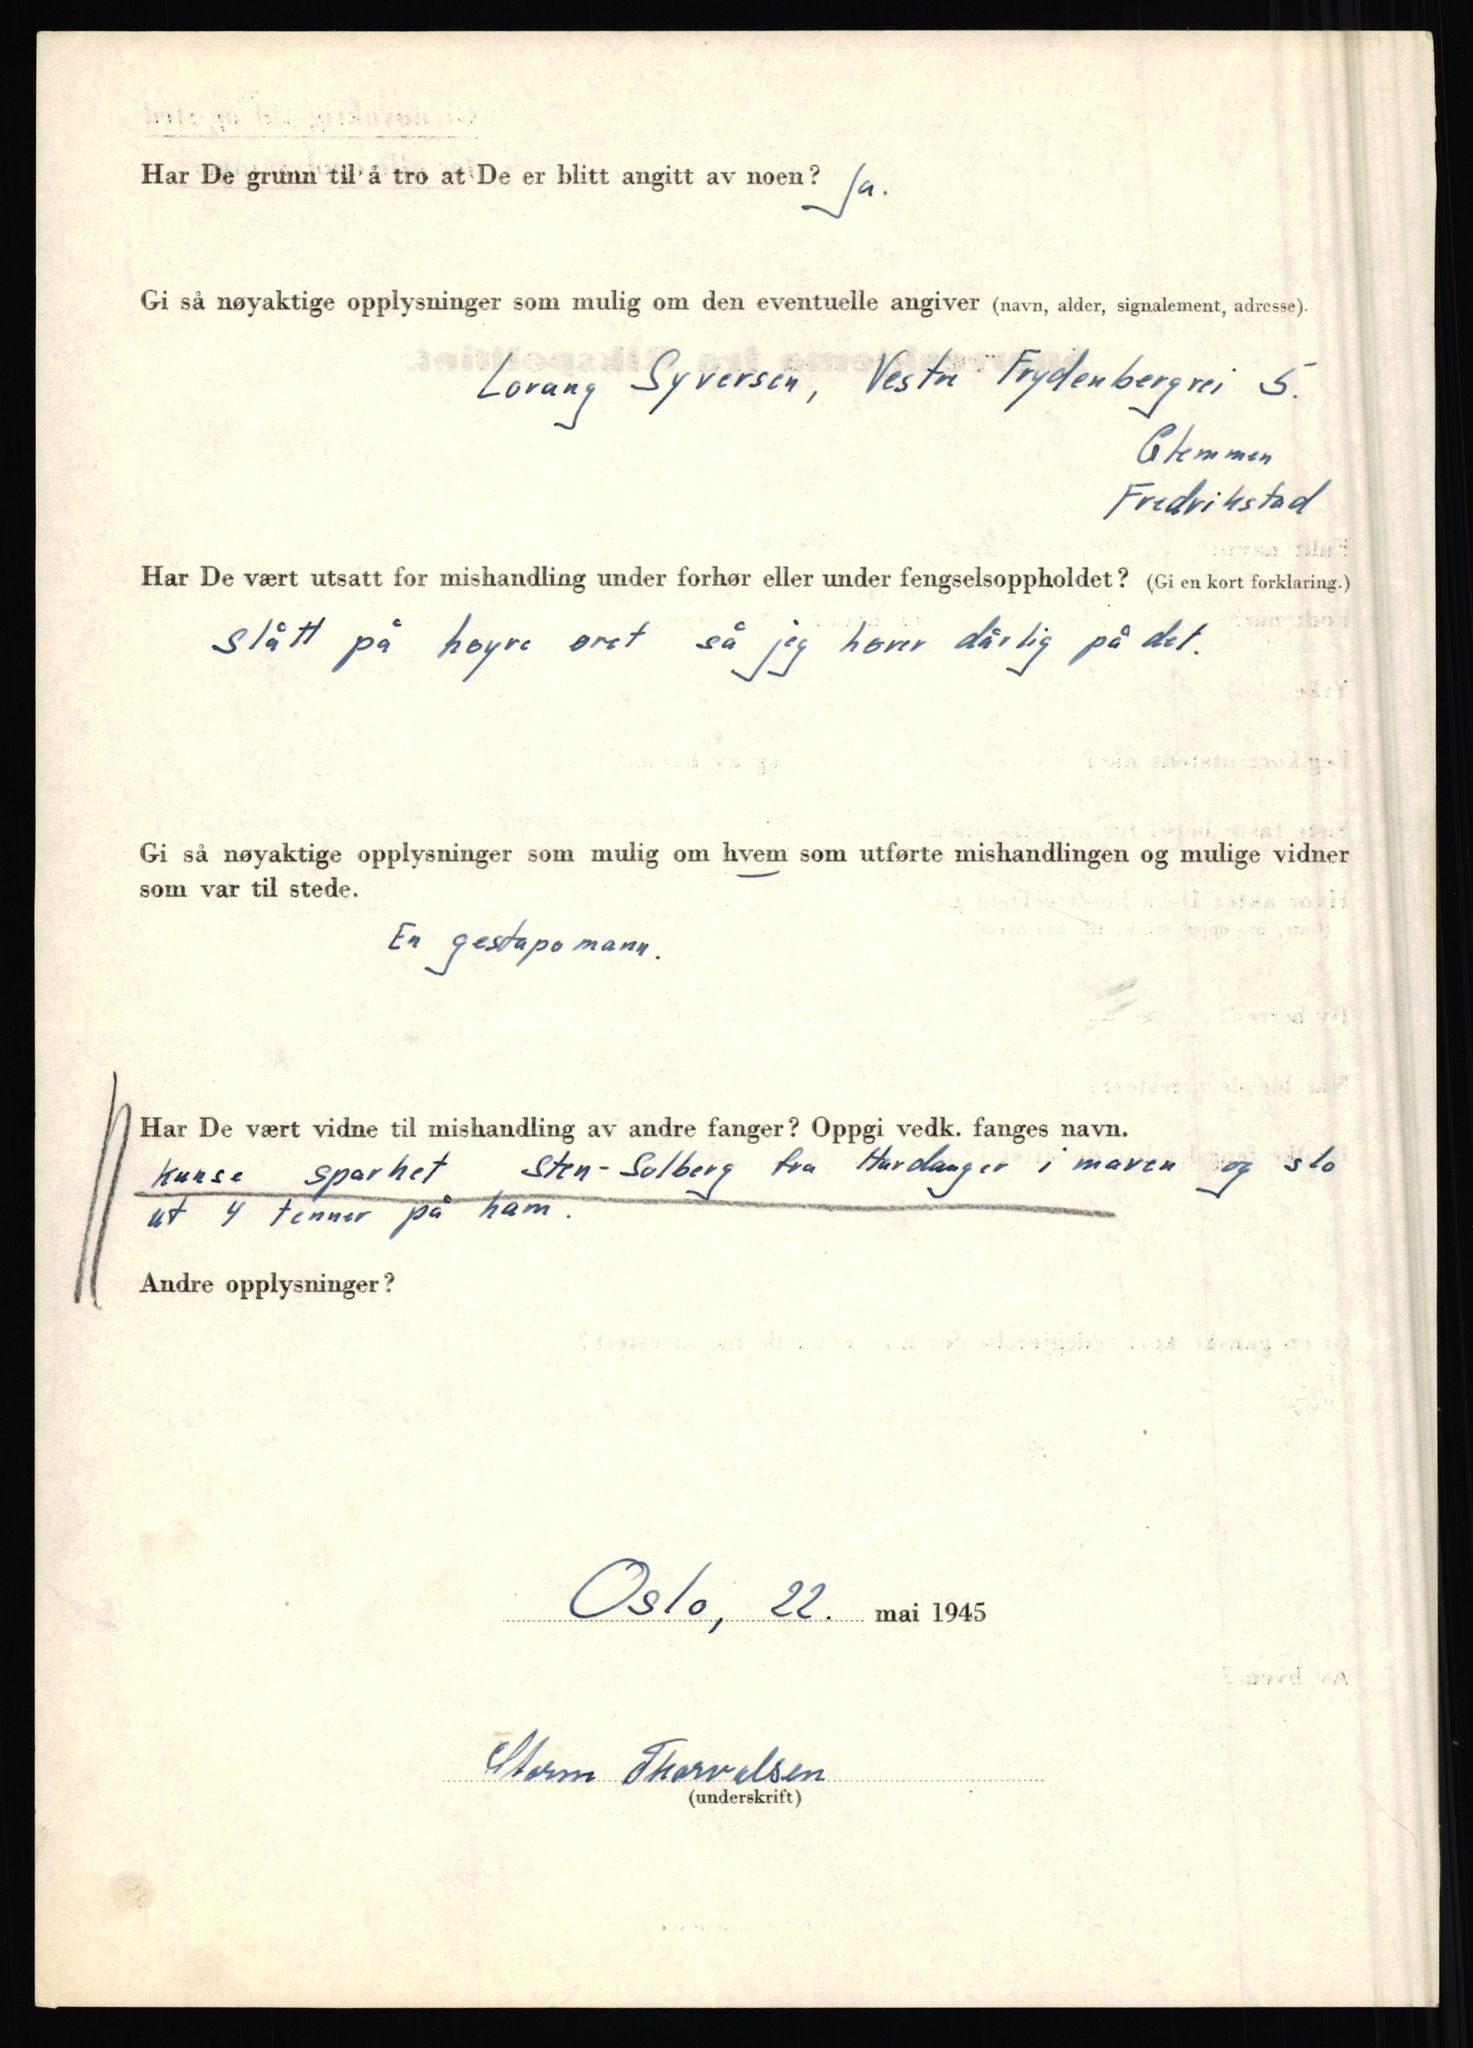 Har De grunn til å tro at De er blitt angitt av noen? Ja.
Gi så nøyaktige opplysninger som mulig om den eventuelle angiver (navn, alder, signalement, adresse).
Lorang Syversen, Vestre Frydenbergvei 5.
Glemmen
Fredrikstad
Har De vært utsatt for mishandling under forhør eller under fengselsoppholdet? (Gi en kort forklaring.)
slått på høyre øret så jeg hører dårlig på det.
Gi så nøyaktige opplysninger som mulig om hvem som utførte mishandlingen og mulige vidner
som var til stede.
En gestapomann.
Har De vært vidne til mishandling av andre fanger? Oppgi vedk. fanges navn.
Kunse sparket Sten-Solberg fra Hardanger i maven og slo
ut 4 tenner på ham.
Andre opplysninger?
Oslo, 22. mai 1945
Storm Thorvalsen
(underskrift)